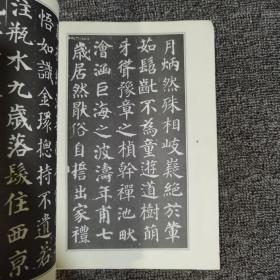 月炳然殊相岐嶷絕於葷
茹髫齔不為童遊道樹萌
牙聳豫章之楨幹禪池畎
澮涵巨海之波濤年甫七
歲居然猒俗自誓出家禮
悟如識金環總持不遺若
注瓶水九歲落髮住西京